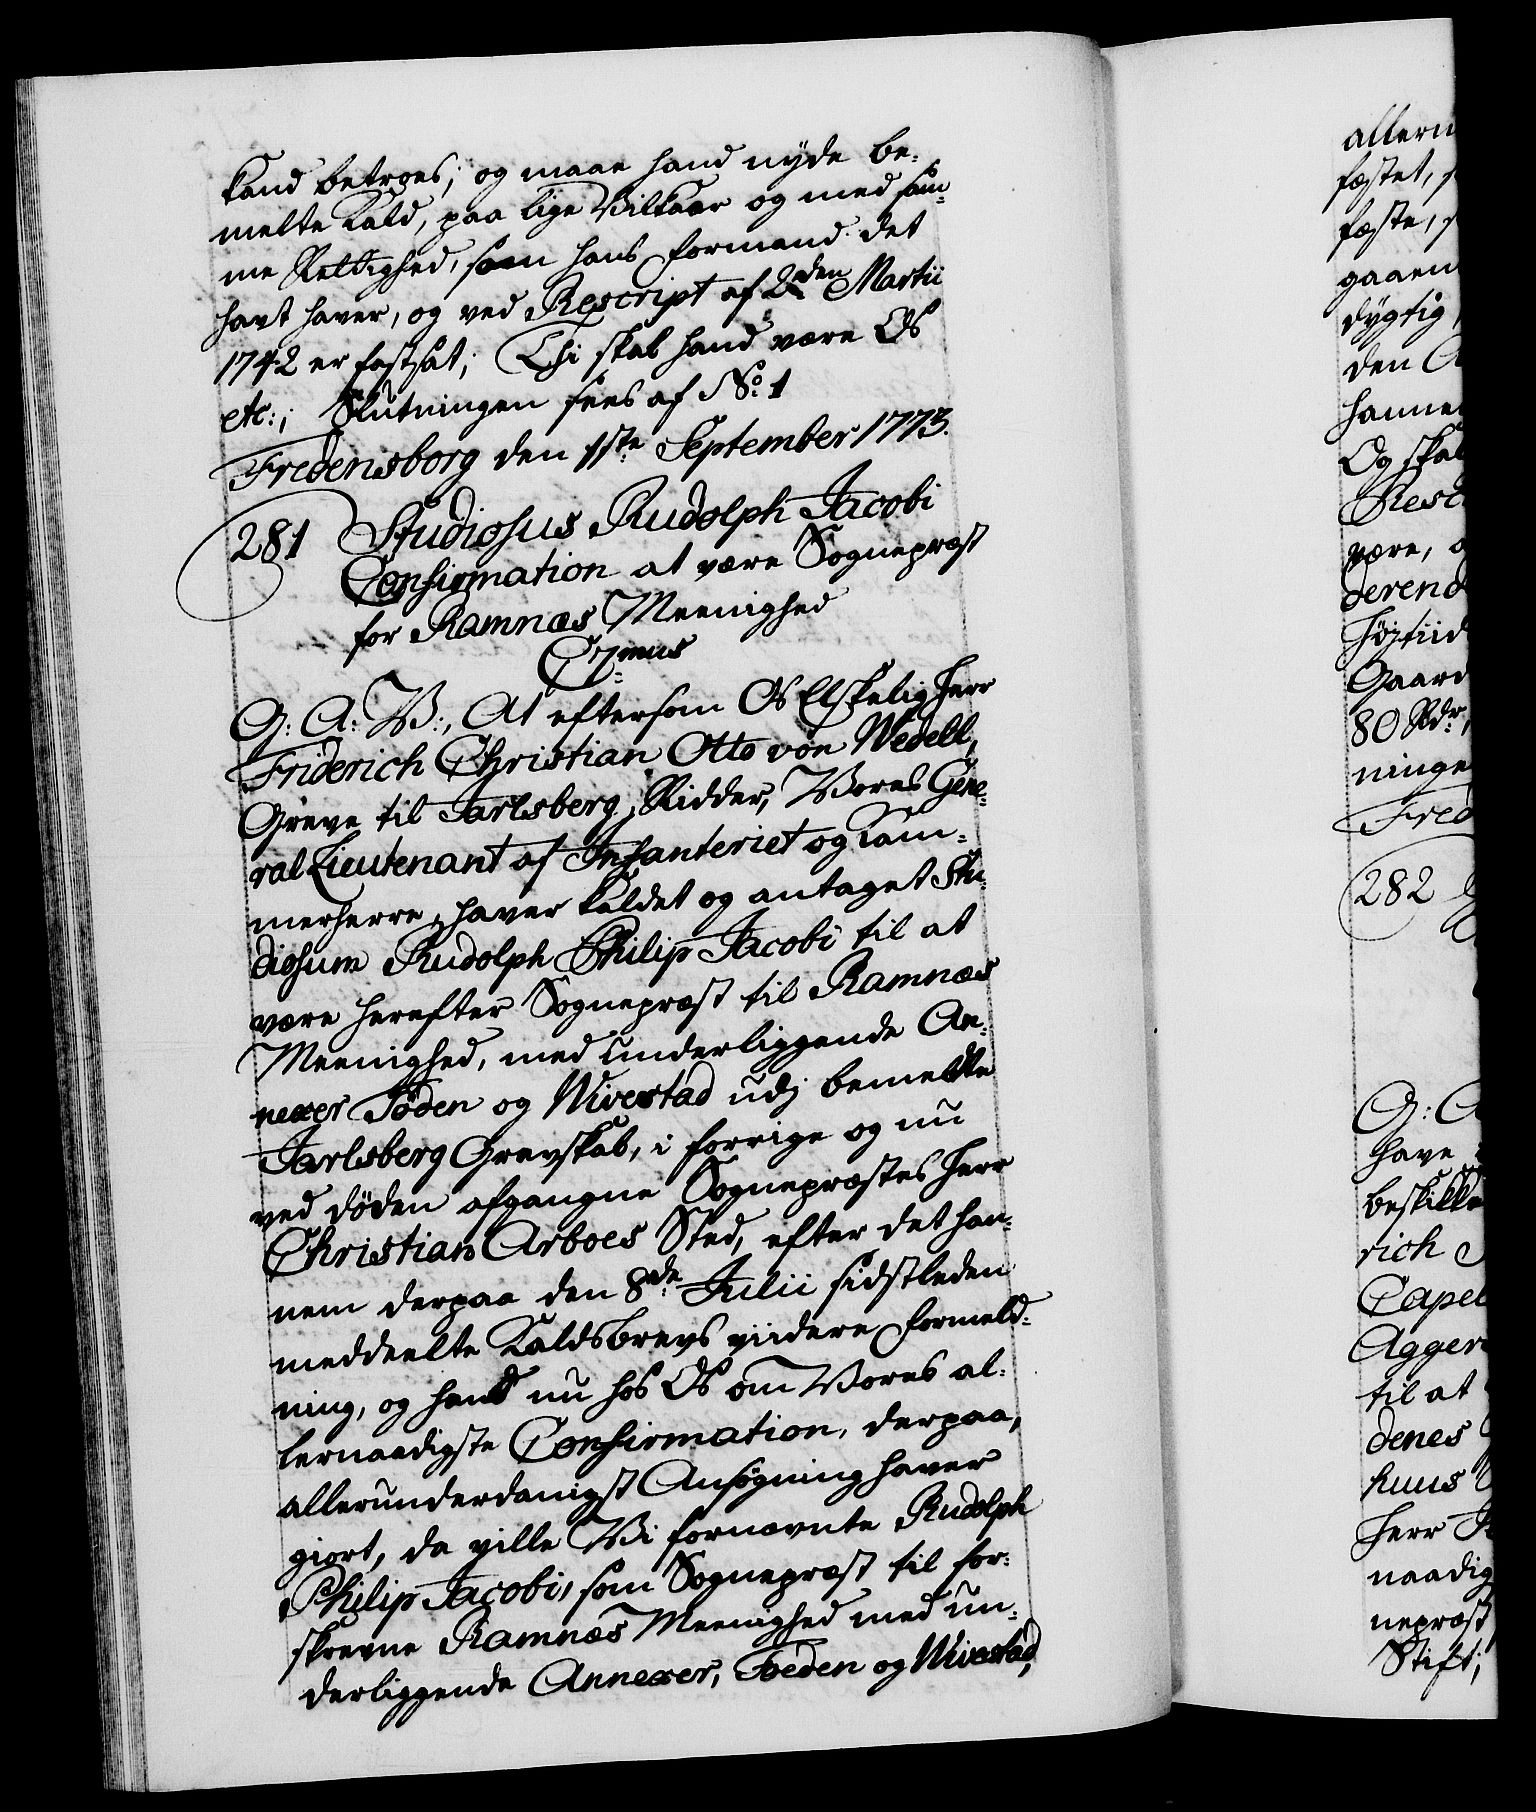 kand betroes; og maae hand nyde be-
melte Kald, paa lige Vilkaar og med sam-
me Rettighed, som hans formand det
havt haver, og ved Rescript af 2den Martii
1742 er fastsat; Thi skal hand være Os
etc:; Slutningen sees af No: 1
Fredensborg den 1ste September 1773.
281 Studiosus Rudolph Jacobi
Confirmation at være Sognepræst
for Ramnæs Meenighed
C7.mus
G: A: V:, At eftersom Os Elskelig Herr
Friderich Christian Otto von Wedell,
Greve til Jarlsberg, Ridder, Vores Gene-
ral Lieutenant af Infanteriet og Kam-
merherre, haver kaldet og antaget Stu-
diosum Rudolph Philip Jacobi til at
være herefter Sognepræst til Ramnæs
Meenighed, med underliggende An-
nexer Føden og Wivestad udj bemeldte
Jarlsberg Grevskab, i forrige og nu
ved døden afgangne Sognepræstes Herr
Christian Arboes Sted, efter det han-
nem derpaa den 8de Julii sidstleden
meddeelte Kaldsbrevs viidere formeld-
ning, og hand nu hos Os om Vores al-
lernaadigste Confirmation, derpaa,
allerunderdanigst Ansøgning haver
giort, da ville Vi fornævnte Rudolph
Philip Jacobi, som Sognepræst til for-
skrevne Ramnæs Meenighed med un-
derliggende Annexer, Føeden og Wivestad,
allern
fæstet,
fæste,
gaaen
dygtig
den
hanne
Og skal
Resc
være,
derend
høytiid
Gaard
80 Rdr,
ninge
Fred
282
G:
have
beskikke
rich
Capel
Agger
til at
denes
huus
Herr
naadig
nepræst
Stift;